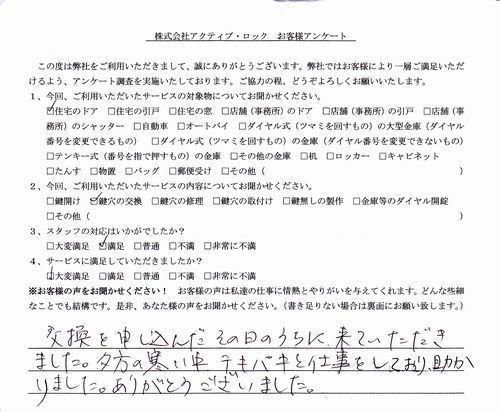 株式会社アクティブ・ロック　お客様アンケート
この度は弊社をご利用いただきまして、誠にありがとうございます。弊社ではお客様により一層ご満足いただ
けるよう、アンケート調査を実施いたしております。ご協力の程、どうぞよろしくお願いいたします。
1、今回、ご利用いただいたサービスの対象物についてお聞かせください。
☑住宅のドア　□住宅の引戸　□住宅の窓　□店舗（事務所）のドア　□店舗（事務所）の引戸　□店舗（事
務所）のシャッター　□自動車　□オートバイ　□ダイヤル式（ツマミを回すもの）の大型金庫（ダイヤル
番号を変更できるもの）　□ダイヤル式（ツマミを回すもの）の金庫（ダイヤル番号を変更できないもの）
□テンキー式（番号を指で押すもの）の金庫　□その他の金庫　□机　□ロッカー　□キャビネット
□たんす　□物置　□バッグ　□郵便受け　□その他（　）
2、今回、ご利用いただいたサービスの内容についてお聞かせください。
□鍵開け　☑鍵穴の交換　□鍵穴の修理　□鍵穴の取付け　□鍵無しの製作　□金庫等のダイヤル開錠
□その他（　）
3、スタッフの対応はいかがでしたか？
□大変満足　☑満足　□普通　□不満　□非常に不満
4、サービスに満足していただきましたか？
☑大変満足　□満足　□普通　□不満　□非常に不満
※お客様の声をお聞かせください！　お客様の声は私達の仕事に情熱とやりがいを与えてくれます。どんな些細
なことでも結構です。是非、あなた様の声をお聞かせください。（書き足りない場合は裏面にお願い致します。）
交換を申し込んだその日のうちに、来ていただき
ました。夕方の寒い中テキパキと仕事をしており、助か
りました。ありがとうございました。